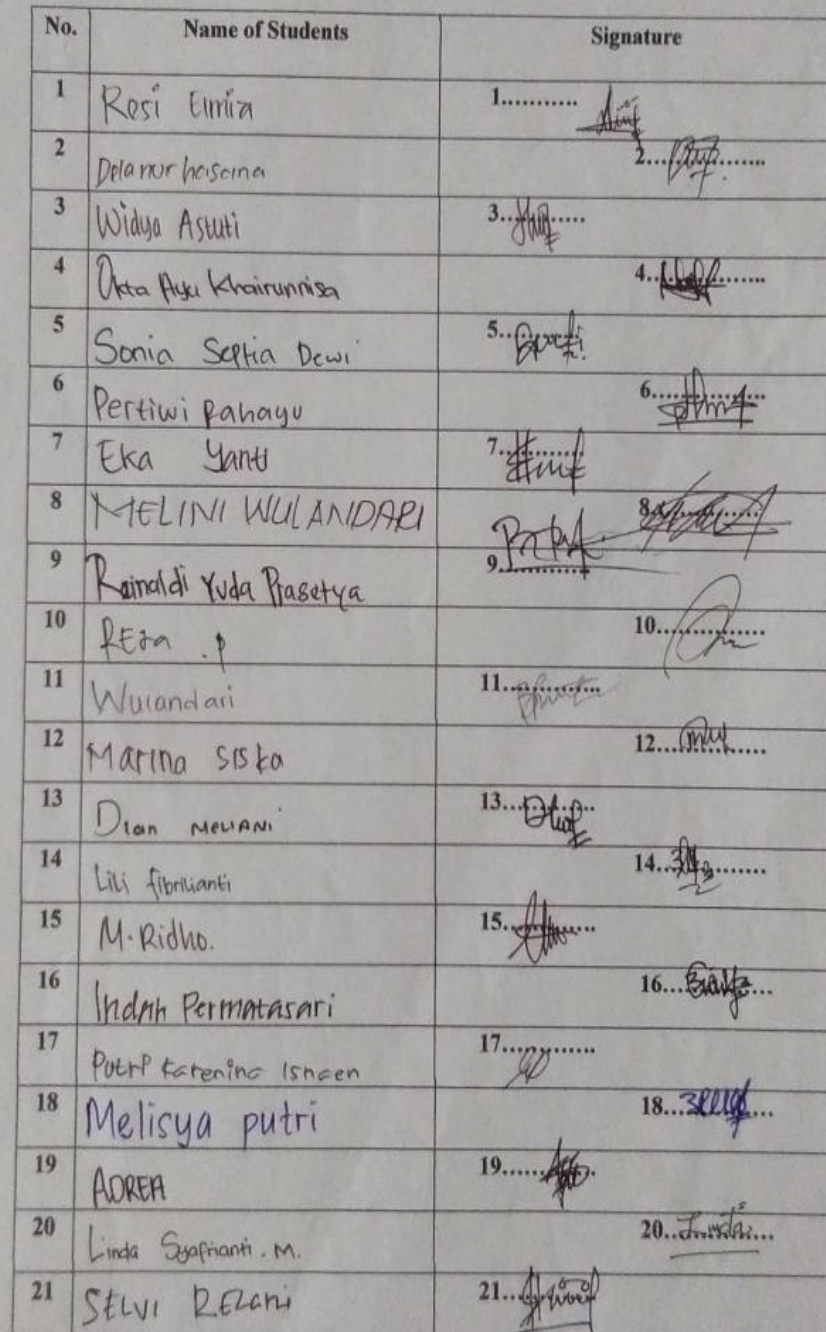 No. Name of Students Signature
1 Resi Elmia 1...........
2 Dela nur hasana 2.............
3 Widya Astuti 3...........
4 Okta Ayu Khairunnisa 4.............
5 Sonia Septia Dewi 5...........
6 Pertiwi Rahayu 6.............
7 Eka Yanti 7...........
8 MELINI WULANDARI 8.............
9 Reinaldi Yuda Prasetya 9.............
10 REza .P 10.............
11 Wulandari 11.............
12 Marina siska 12.............
13 Dian MELIANI 13.............
14 Lili fibrilianti 14.............
15 M. Ridho. 15.............
16 Indah Permatasari 16.............
17 Putri Karenina Isnaen 17.............
18 Melisya putri 18.............
19 19.............
20 Linda Syafrianti . M. 20.. Linda ...
21 SELVI REZani 21.............